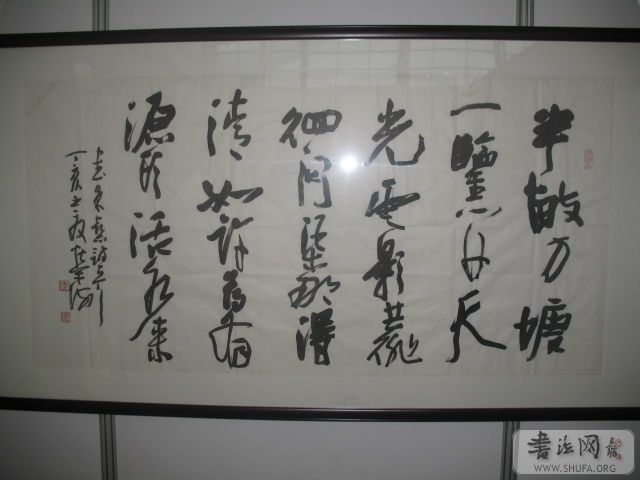 半畝方塘
一鑑開天
光雲影共徘
徊問渠那得
清如許為有
源頭活水來
書朱熹詩
丁亥之夏
書法网
WWW.SHUFA.ORG